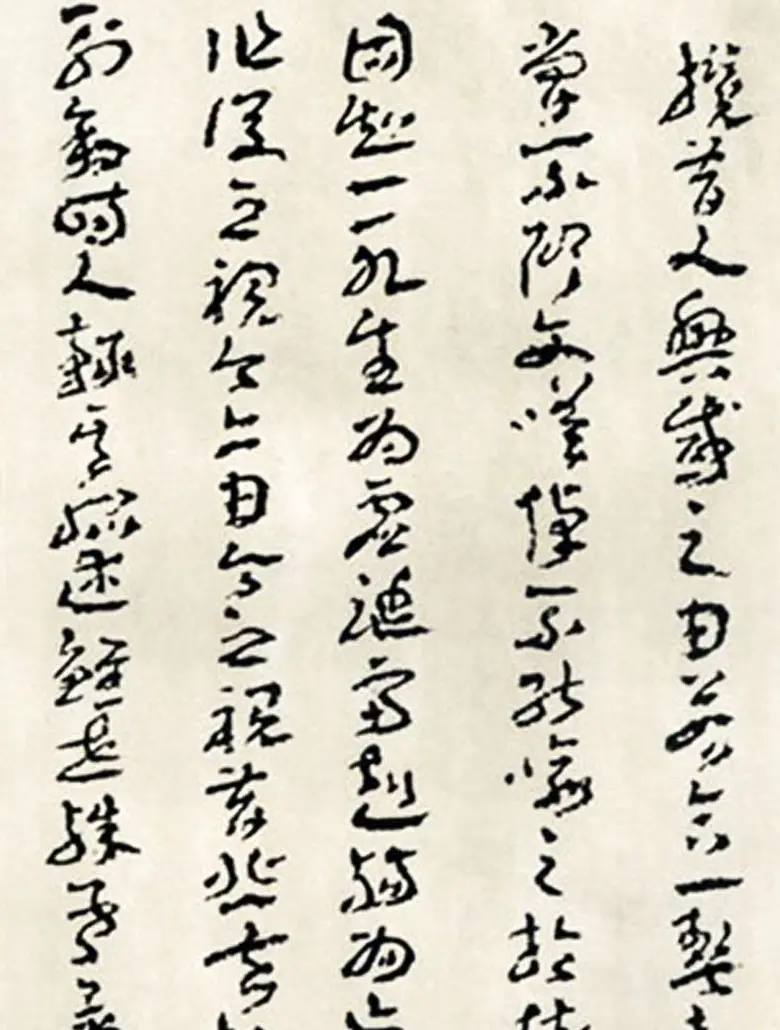 攬昔人興感之由若合一契
嘗不臨文嗟悼不能喻之於懷
固知一死生為虛誕齊彭殤為妄
作後之視今亦由今之視昔悲夫
列敘時人錄其所述雖世殊事異